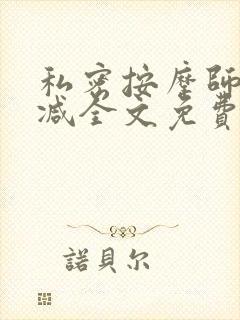 私密按摩師
减全文免費
諾貝尔